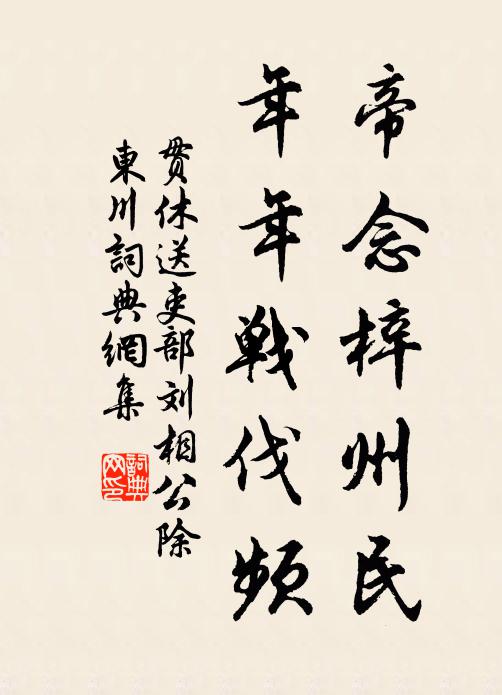 帝念梓州民
年年戰伐頻
贯休送吏部刘相公除
東川詞典網集
詞典
网印